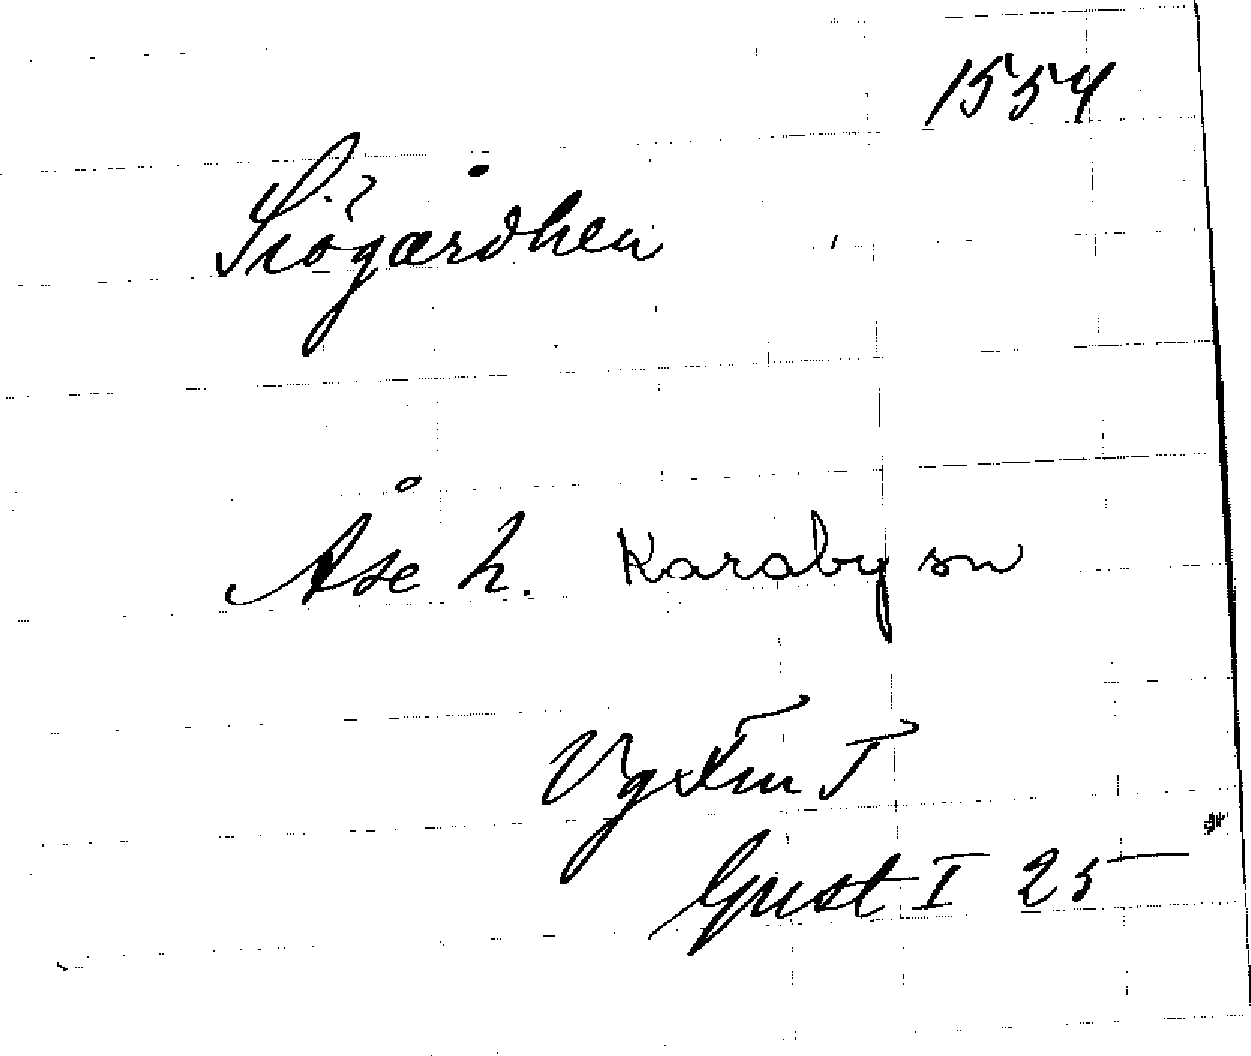 1554
Siögårdhen
Åse h. Karaby sn
Vg Fm T
Gust I 25